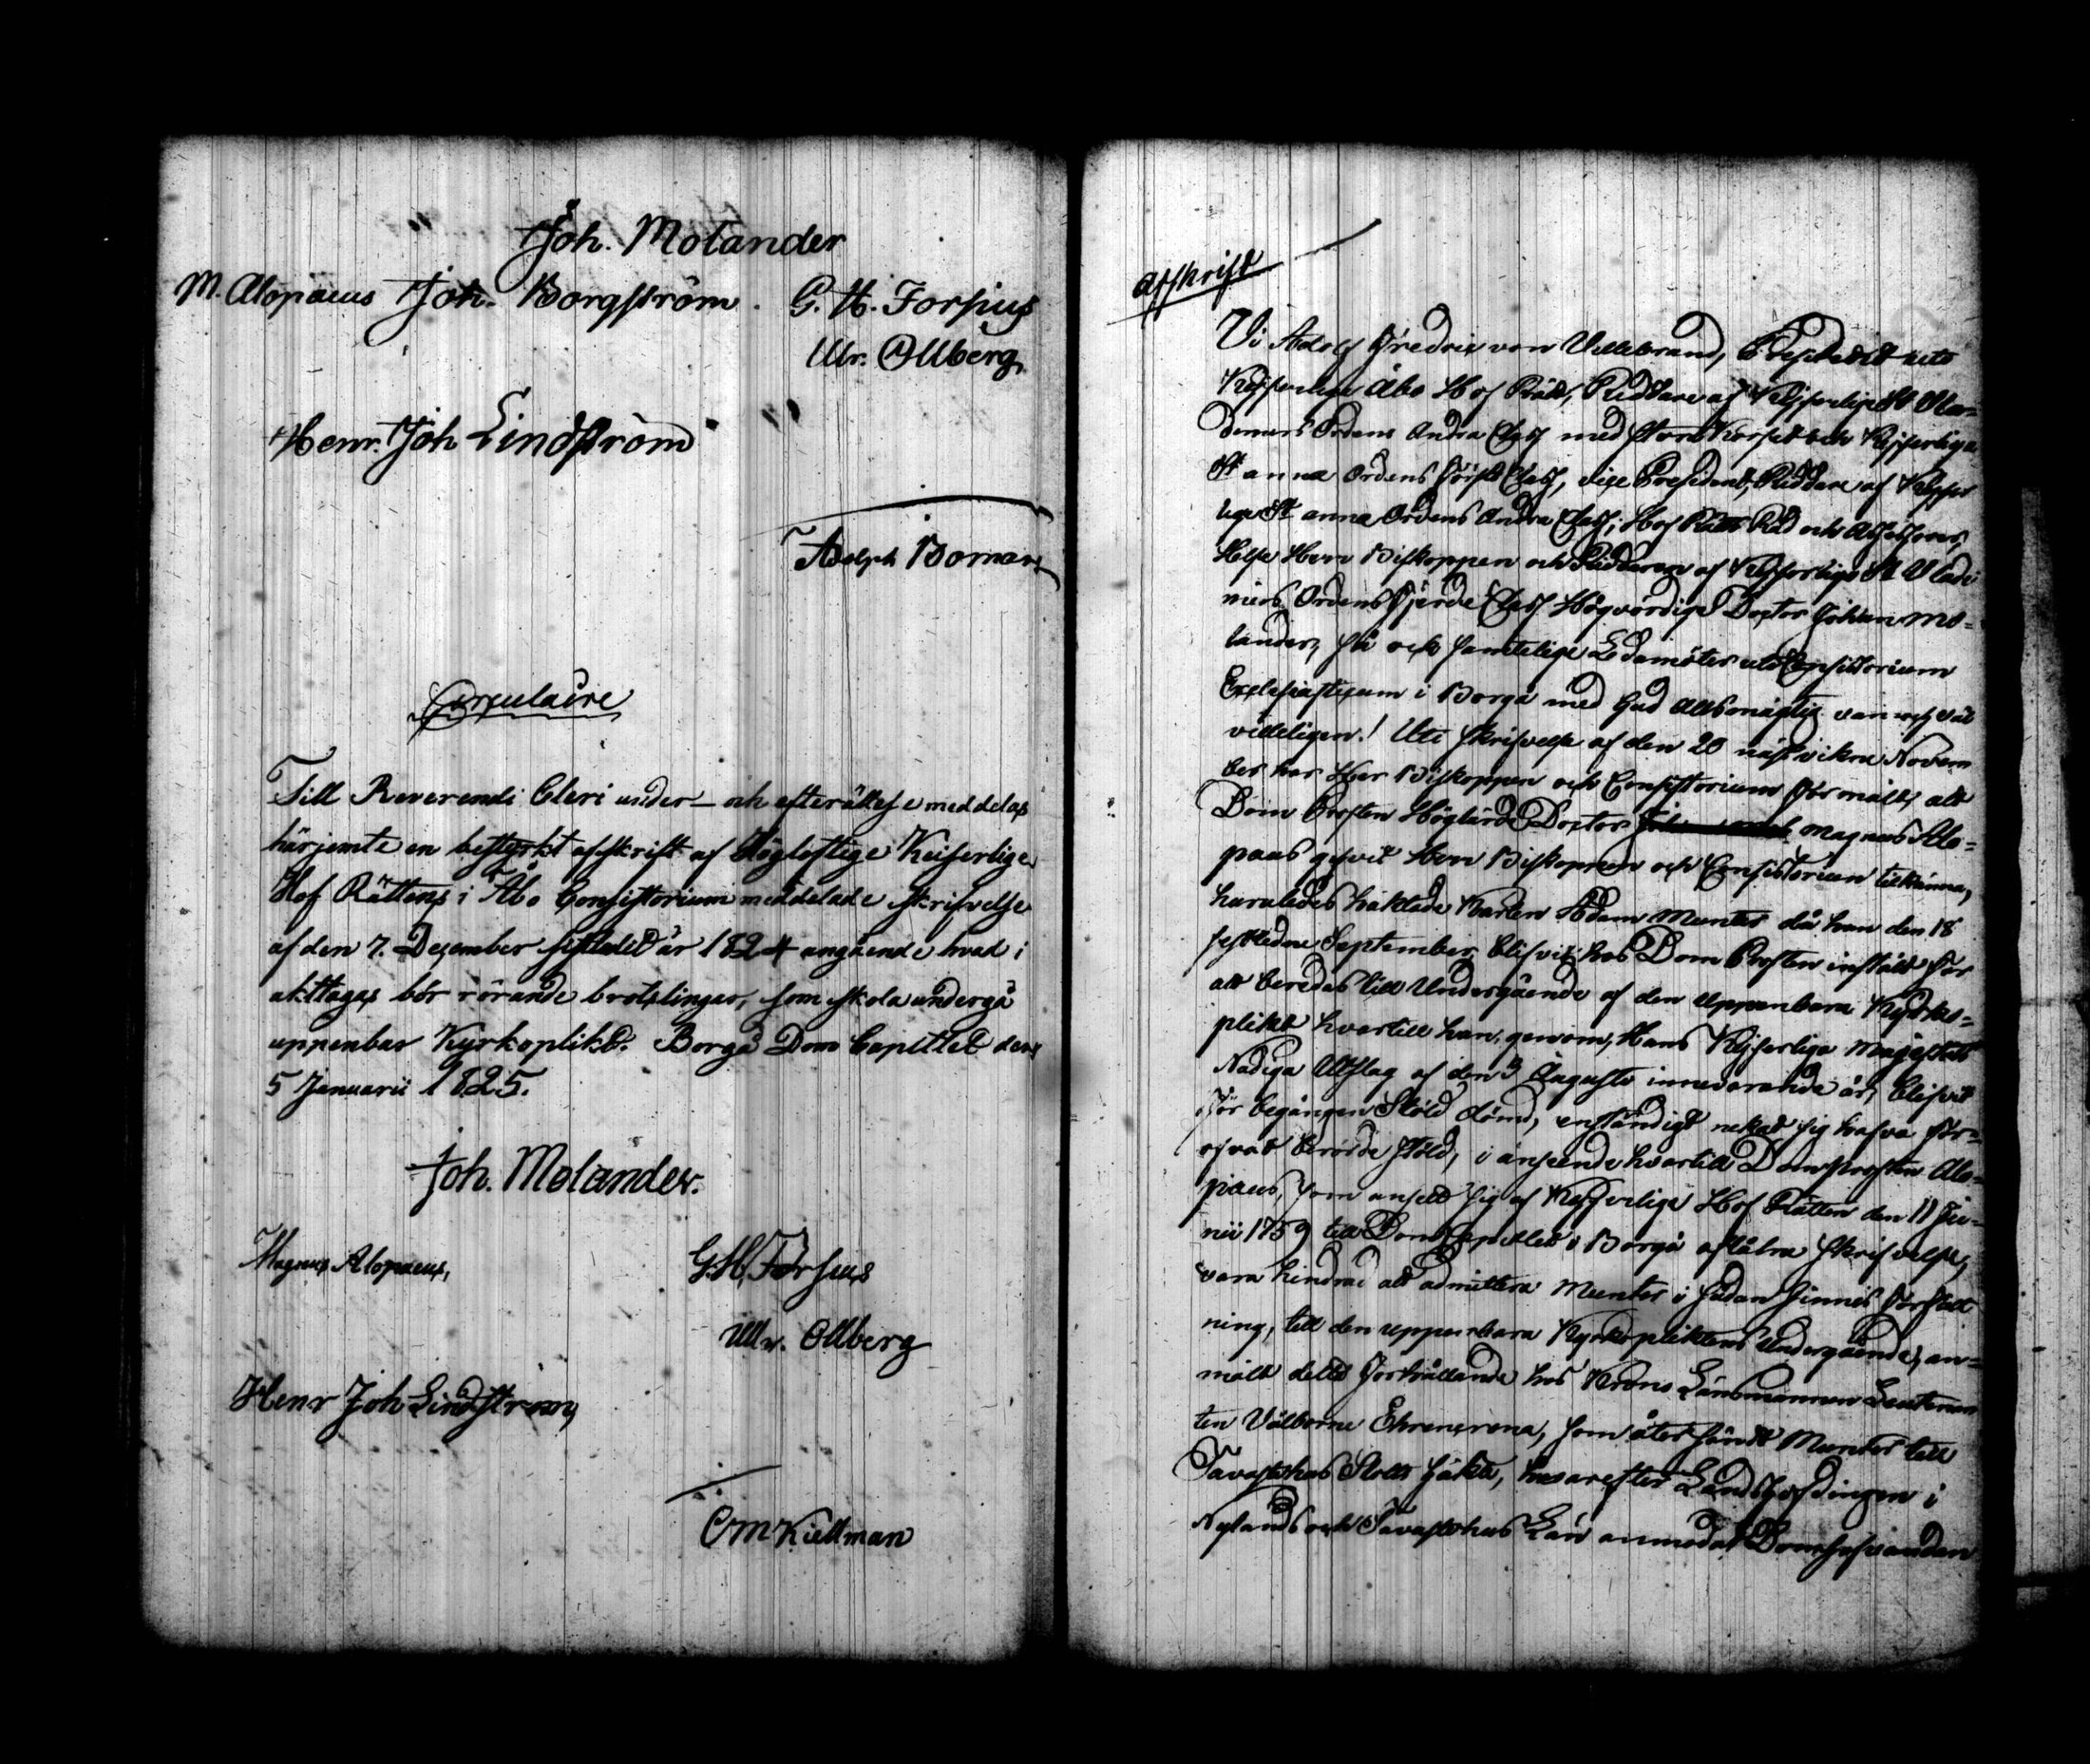 Joh. Molander
M. Alopaeus Joh. Borgström. G. H. Forsius
Ulr. Ollberg
Henr. Joh Lindström
Adolph Boman
Circulaire
Till Reverendi Cleri under- och efterättelse meddelas
härjemte en bestyrkt afskrift af Högloflige Keiserlige
Hof Rättens i Åbo Consistorium meddelade skrifvelse
af den 7. December sistledit år 1824 angående hvad i
akttagas bör rörande brotslingar, som skola undergå
uppenbar Kyrkoplikt. Borgå Dom Capittel den
5 Januarii 1825.
Joh. Molander.
Magnus Alopaeus,
G. H. Forsius
Ulr. Ollberg
Henr Joh Lindström
C M Kiellman
Afskrift
Vi Adolf Fredric von Willebrand, President uti
Kejserliga Åbo Hof Rätt, Riddare af Kejserlige St Vla=
dimers Ordens Andra Class med stora Korset och Kejserliga
St Anna Ordens första Class, vice President, Riddare af Kejser
lige St Anna Ordens Andra Class; Hof Rätts Råd och Assessorer,
Helse Herr Biskoppen och Riddaren af Kejserlige St Vladi
mirs Ordens fjerde Class Högvördige Doctor Johan Mo=
lander, så ock samtelige Ledamöter uti Consistorium
Ecclesiasticum i Borgå med Gud Allsmägtig vän och väl
villeligen! Uti skrifvelse af den 20 nästvikne Novem
ber har Herr Biskoppen och Consistorium förmält, att
Dom Prosten Höglärde Doctor Magnus Alo=
paeus gifvit Herr Biskoppen och Consistorium tillkänna,
huruledes häktade Karlen Adam Munter då han den 18
sistledne September blifvit hos Dom Prosten instäld för
att beredas till Undergående af den uppenbara Kyrko=
plikt hvartill han, genom, Hans Kejserliga Majestäts
Nådiga Utslag af den 3 Augusti innevarande år, blifvit
för begången Stöld dömd, enständigt nekat sig hafva för=
öfvat berörde stöld, i anseende hvartill Dom Prosten Alo=
paeus, som ansett sig af Kejserlige Hof Rätten den 11 Ju=
nii 1759 till Dom Capitlet i Borgå aflåtna skrifvelse,
vara hindrad att admittera Munter i sådan sinnes författ
ning, till den uppenbara Kyrkopliktens Undergående, an=
mält detta förhållande hos Krono Länsmannen Leutenan
ten Välborne Ehrenrona, som återsändt Munter till
Tavastehus Slotts häkte, hvarefter Landshöfdingen i
Nylands och Tavastehus Län anmodat Domhafvanden